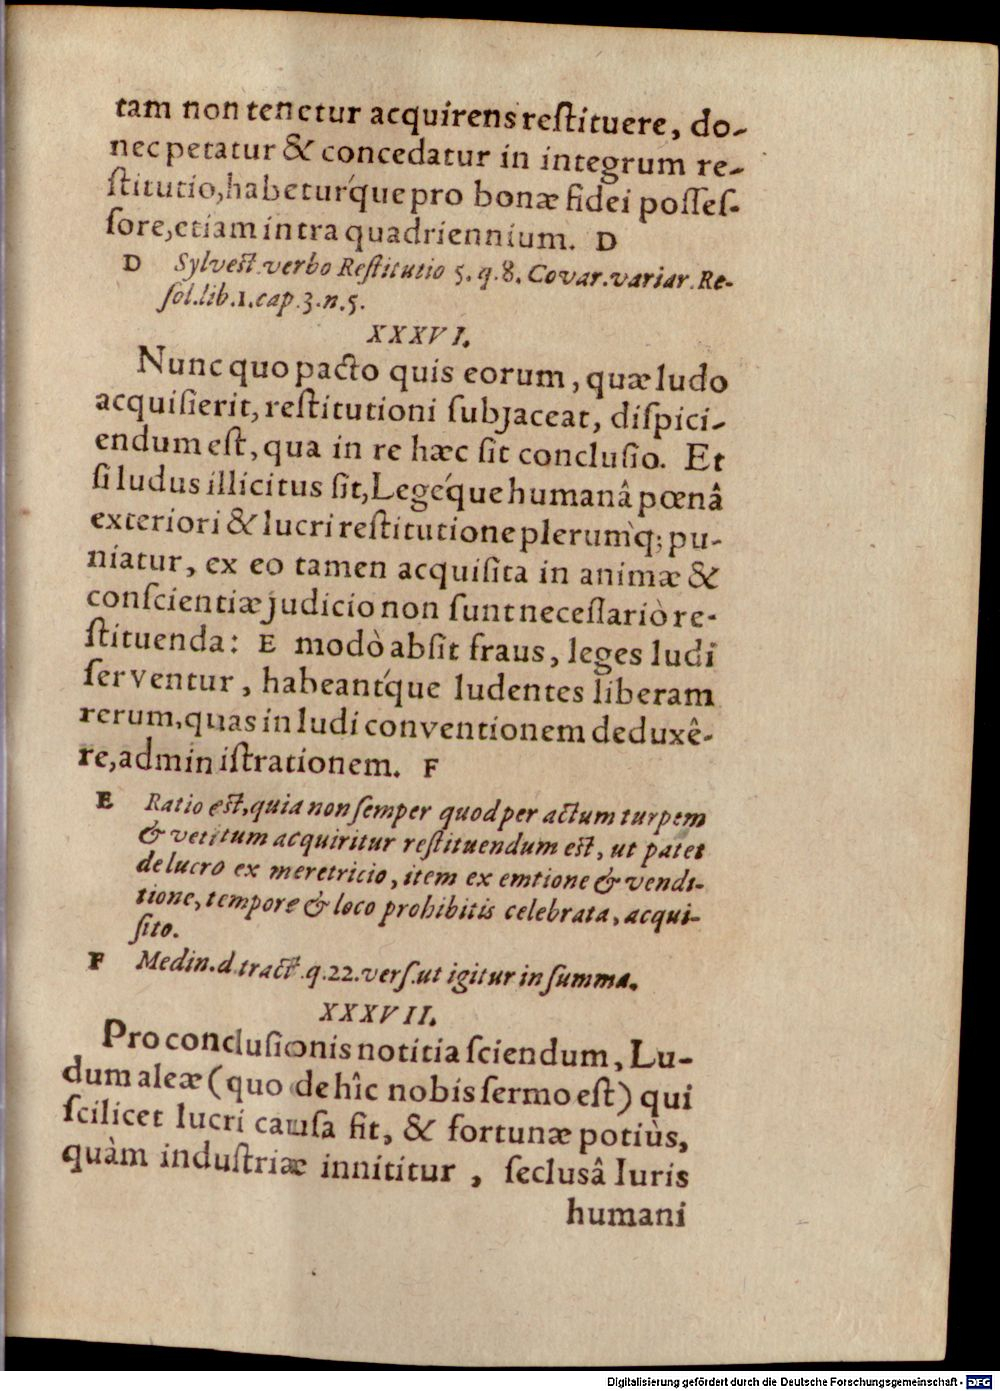 tam non tenetur acquirens reſtituere, do-
nec petatur & concedatur in integrum re-
ſtitutio, habeturq́ue pro bonæ fidei poſſeſ-
ſore, etiam intra quadriennium. D
D Sylveſt. verbo Reſtitutio 5. q. 8. Covar. variar. Re-
ſol. lib. 1. cap. 3. n. 5.
XXXVI.
Nunc quo pacto quis eorum, quæ ludo
acquiſierit, reſtitutioni ſubjaceat, diſpici-
endum eſt, qua in re hæc ſit concluſio. Et
ſi ludus illicitus ſit, Legeq́ue humanâ pœnâ
exteriori & lucri reſtitutione plerumq̀; pu-
niatur, ex eo tamen acquiſita in animæ &
conſcientiæ judicio non ſunt neceſſariò re-
ſtituenda: E modò abſit fraus, leges ludi
ſerventur, habeantq́ue ludentes liberam
rerum, quas in ludi conventionem deduxê-
re, adminiſtrationem. F
E Ratio eſt, quia non ſemper quod per actum turpem
& vetitum acquiritur reſtituendum eſt, ut patet
de lucro ex meretricio, item ex emtione & vendi-
tione, tempore & loco prohibitis celebrata, acqui-
ſito.
F Medin. d. tract. q. 22. verſ. ut igitur in ſumma.
XXXVII.
Pro concluſionis notitia ſciendum, Lu-
dum aleæ (quo de hîc nobis ſermo eſt) qui
ſcilicet lucri cauſa fit, & fortunæ potiùs,
quàm induſtriæ innititur, ſeclusâ Iuris
humani
Digitalisierung gefördert durch die Deutsche Forschungsgemeinschaft - DFG